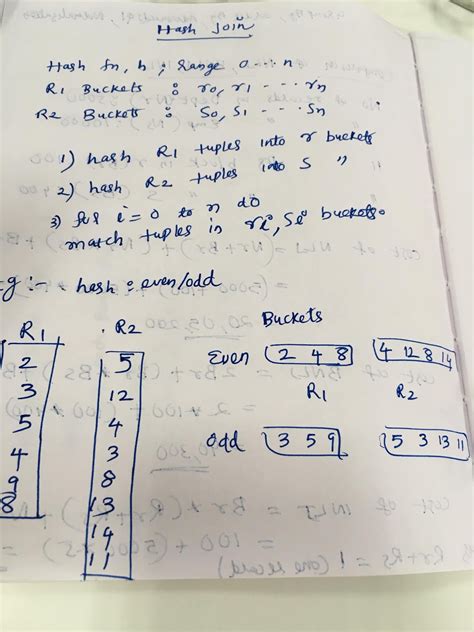 Hash Join
Hash fn, h ; Range 0 ... n
R1 Buckets : r0, r1 ... rn
R2 Buckets : S0, S1 ... Sn
1) hash R1 tuples into r buckets
2) hash R2 tuples into S "
3) for i = 0 to n do
match tuples in ri, Si buckets.
g :- hash : even/odd
R1 R2 Buckets
2 5 Even 2 4 8 4 12 8 14
3 12 R1 R2
5 4 Odd 3 5 9 5 3 13 11
4 3
9 8
8 13
14
11